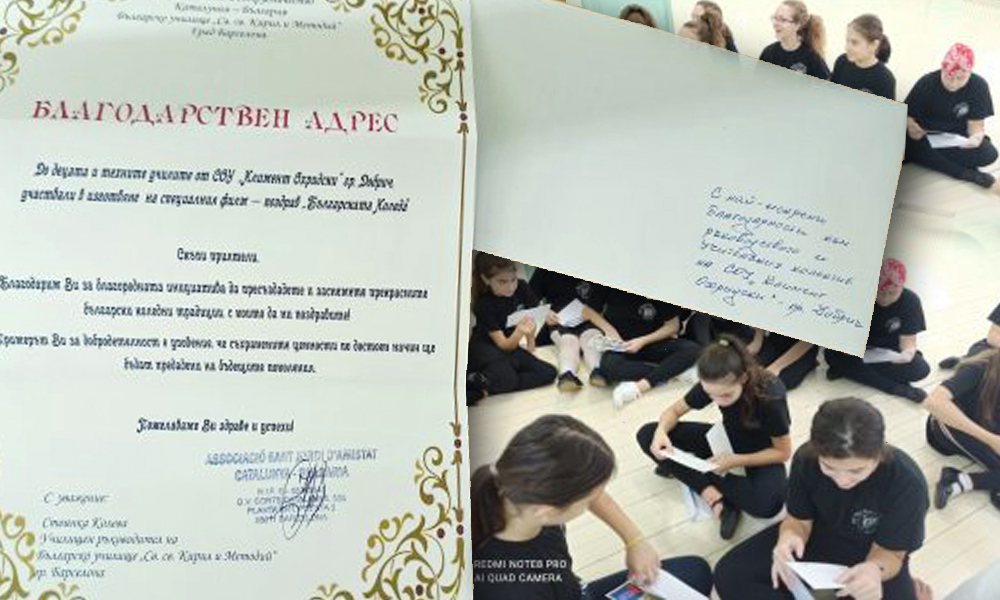 Каталуния – България
Българско училище „Св. св. Кирил и Методий"
Град Барселона
БЛАГОДАРСТВЕН АДРЕС
До децата и техните учители от СОУ „Климент Охридски" гр. Добрич,
участвали в изготвяне на специалния филм – поздрав „Българската Коледа"
Скъпи приятели,
Благодарим Ви за благородната инициатива да пресъздадете и заснемете прекрасните
български коледни традиции, с които да ни поздравите!
Ви за добродетелност и уверение, че съхранените ценности по достоен начин ще
бъдат предадени на бъдещите поколения.
Пожелаваме Ви здраве и успехи!
ASSOCIACIÓ SANT JORDI D'AMISTAT
CATALUNYA -
BARCELONA
С уважение:
Стоянка Колева
Училищен ръководител на
Българско училище „Св. св. Кирил и Методий"
гр. Барселона
С най-искрени
благодарности към
ръководството и
учителския колектив
на СОУ „Климент
Охридски" - гр. Добрич
REDMI NOTE8 PRO
AI QUAD CAMERA